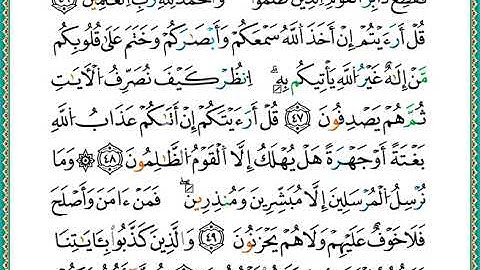 فَقُطِعَ دَابِرُ الْقَوْمِ الَّذِينَ ظَلَمُوا وَالْحَمْدُ لِلَّهِ رَبِّ الْعَالَمِينَ
قُلْ أَرَءَيْتُمْ إِنْ أَخَذَ اللَّهُ سَمْعَكُمْ وَأَبْصَارَكُمْ وَخَتَمَ عَلَى قُلُوبِكُم
مَّنْ إِلَهٌ غَيْرُ اللَّهِ يَأْتِيكُم بِهِ انظُرْ كَيْفَ نُصَرِّفُ الْآيَاتِ
ثُمَّ هُمْ يَصْدِفُونَ ٤٧ قُلْ أَرَءَيْتَكُمْ إِنْ أَتَاكُمْ عَذَابُ اللَّهِ
بَغْتَةً أَوْ جَهْرَةً هَلْ يُهْلَكُ إِلَّا الْقَوْمُ الظَّالِمُونَ ٤٨ ۞ وَمَا
نُرْسِلُ الْمُرْسَلِينَ إِلَّا مُبَشِّرِينَ وَمُنذِرِينَ فَمَنْ ءَامَنَ وَأَصْلَحَ
فَلَا خَوْفٌ عَلَيْهِمْ وَلَا هُمْ يَحْزَنُونَ ٤٩ وَالَّذِينَ كَذَّبُوا بِـَٔايَاتِنَا